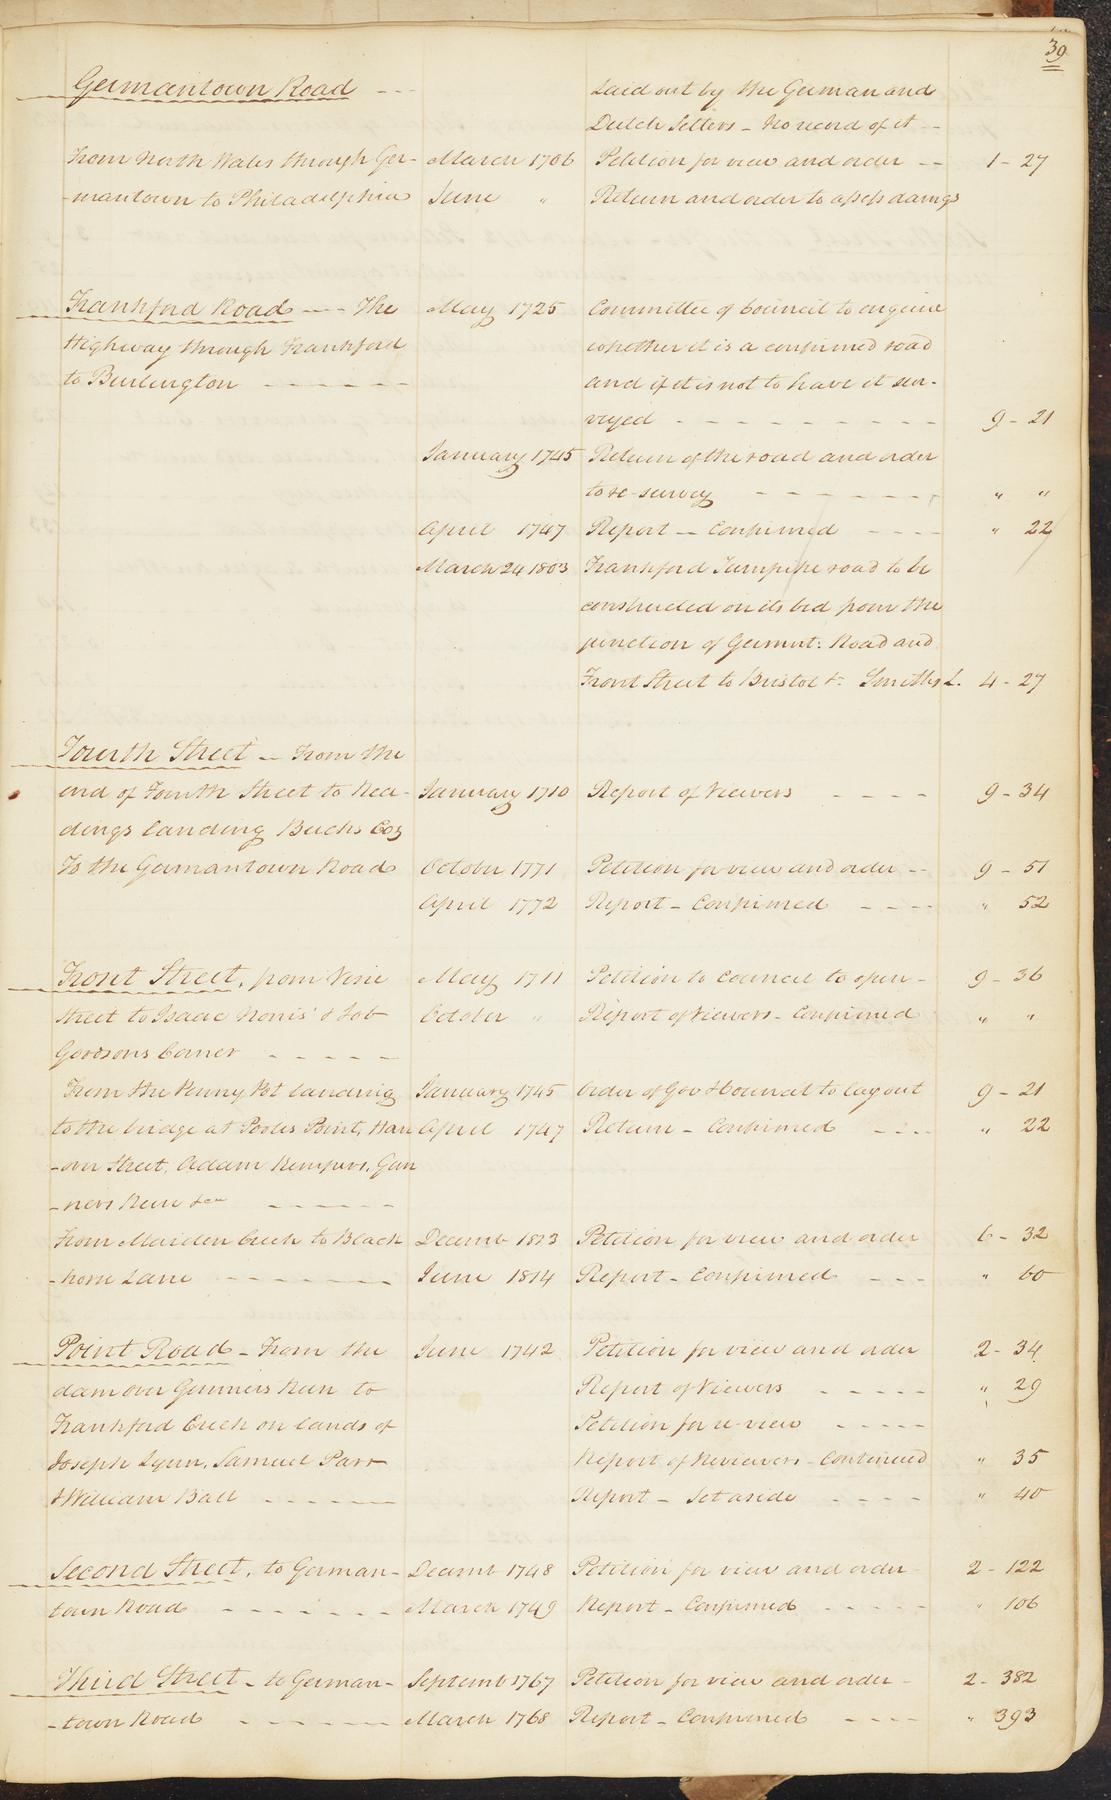 39
Germantown Road - - - Laid out by the German and
Dutch Setlers - No record of it - -
From North Wales through Ger- March 1706 Petition for view and order - - 1 - 27
-mantown to Philadelphia June " Return and order to assess damgs
Frankford Road - - - The May 1725 Committee of Council to enquire
Highway through Frankford whether it is a confirmed road
to Burlington - - - - - - and if it is not to have it sur-
veyed - - - - - - - - - 9 - 21
January 1745 Return of the road and order
to re-survey - - - - - - - " "
April 1747 Report - Confirmed - - - - " 22
March 24 1803 Frankford Turnpike road to be
constructed on its bed from the
junction of Germnt: Road and
Front Street to Bristol &c Smiths L. 4 - 27
Fourth Street - From the
end of Fourth Street to Rea- January 1710 Report of Viewers - - - - 9 - 34
dings landing Bucks Coy
To the Germantown Road October 1771 Petition for view and order - - 9 - 51
April 1772 Report - Confirmed - - - - " 52
Front Street, from Vine May 1711 Petition to Council to open - 9 - 36
Street to Isaac Norris' & Job October " Report of Viewers - Confirmed " "
Goodsons Corner - - - - -
From the Penny Pot landing January 1745 Order of Gov & Council to lay out 9 - 21
to the bridge at Pooles Point, Han April 1747 Return - Confirmed - - - - " 22
-over Street, Adam Kempers, Gun
-ners Run &ca - - - - - -
From Maiden Creek to Black Decemb 1813 Petition for view and order 6 - 32
-horse Lane - - - - - - - June 1814 Report - Confirmed - - - " 60
Point Road - From the June 1742 Petition for view and order 2 - 34
dam over Gunners Run to Report of Viewers - - - - - " 29
Frankford Creek on lands of Petition for re-view - - - - -
Joseph Lynn, Samuel Parr Report of Reviewers - Continued " 35
& William Ball - - - - - - Report - Set aside - - - - " 40
Second Street, to German- Decemb 1748 Petition for view and order 2 - 122
town Road - - - - - - - March 1749 Report - Confirmed - - - - - " 106
Third Street - to German- Septemb 1767 Petition for view and order - 2 - 382
-town Road - - - - - - - March 1768 Report - Confirmed - - - - " 393